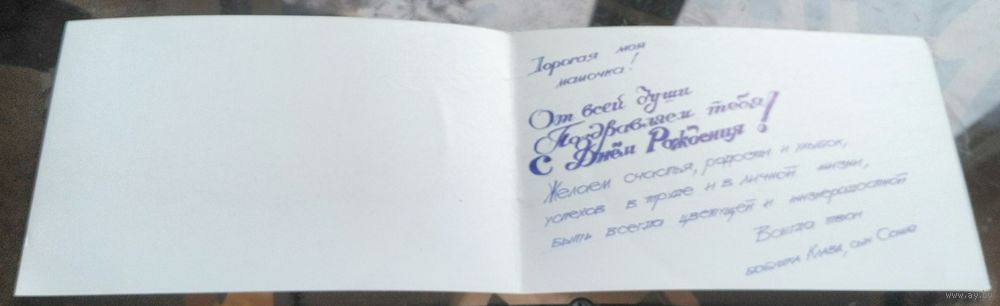 Дорогая моя
мамочка!
От всей души
Поздравляем тебя
С Днём Рождения!
Желаем счастья, радости и улыбок,
успехов в труде и в личной жизни,
быть всегда цветущей и жизнерадостной
Всегда твои
бабушка Клава, сын Сеня
www.ay.by